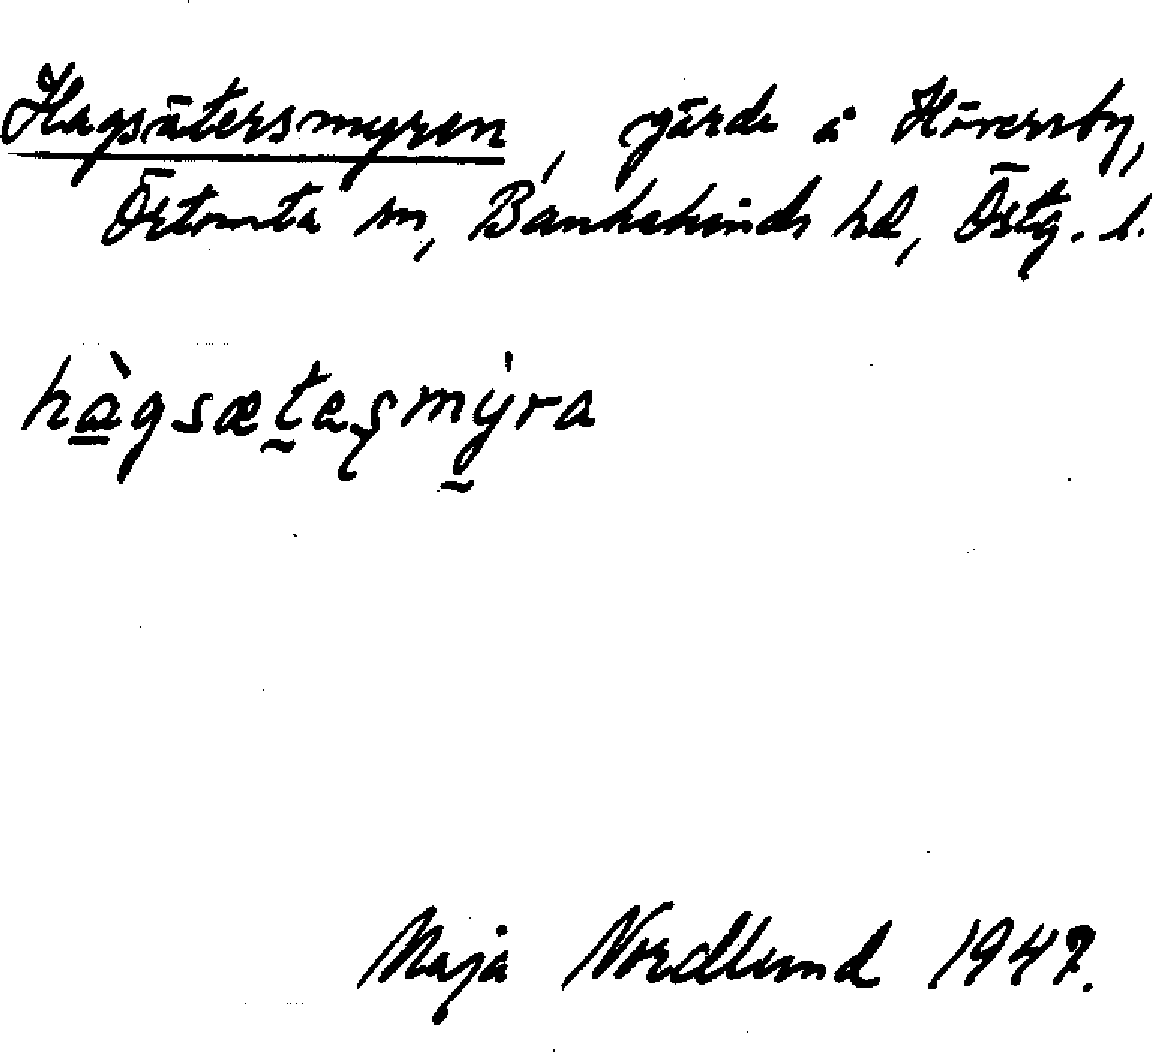 Hagsätersmyren, gärde å Höversby,
Östomta sn, Bankekinds hd, Östg. l.
hàgsætaʂmy̍ra
Maja Nordlund 1947.